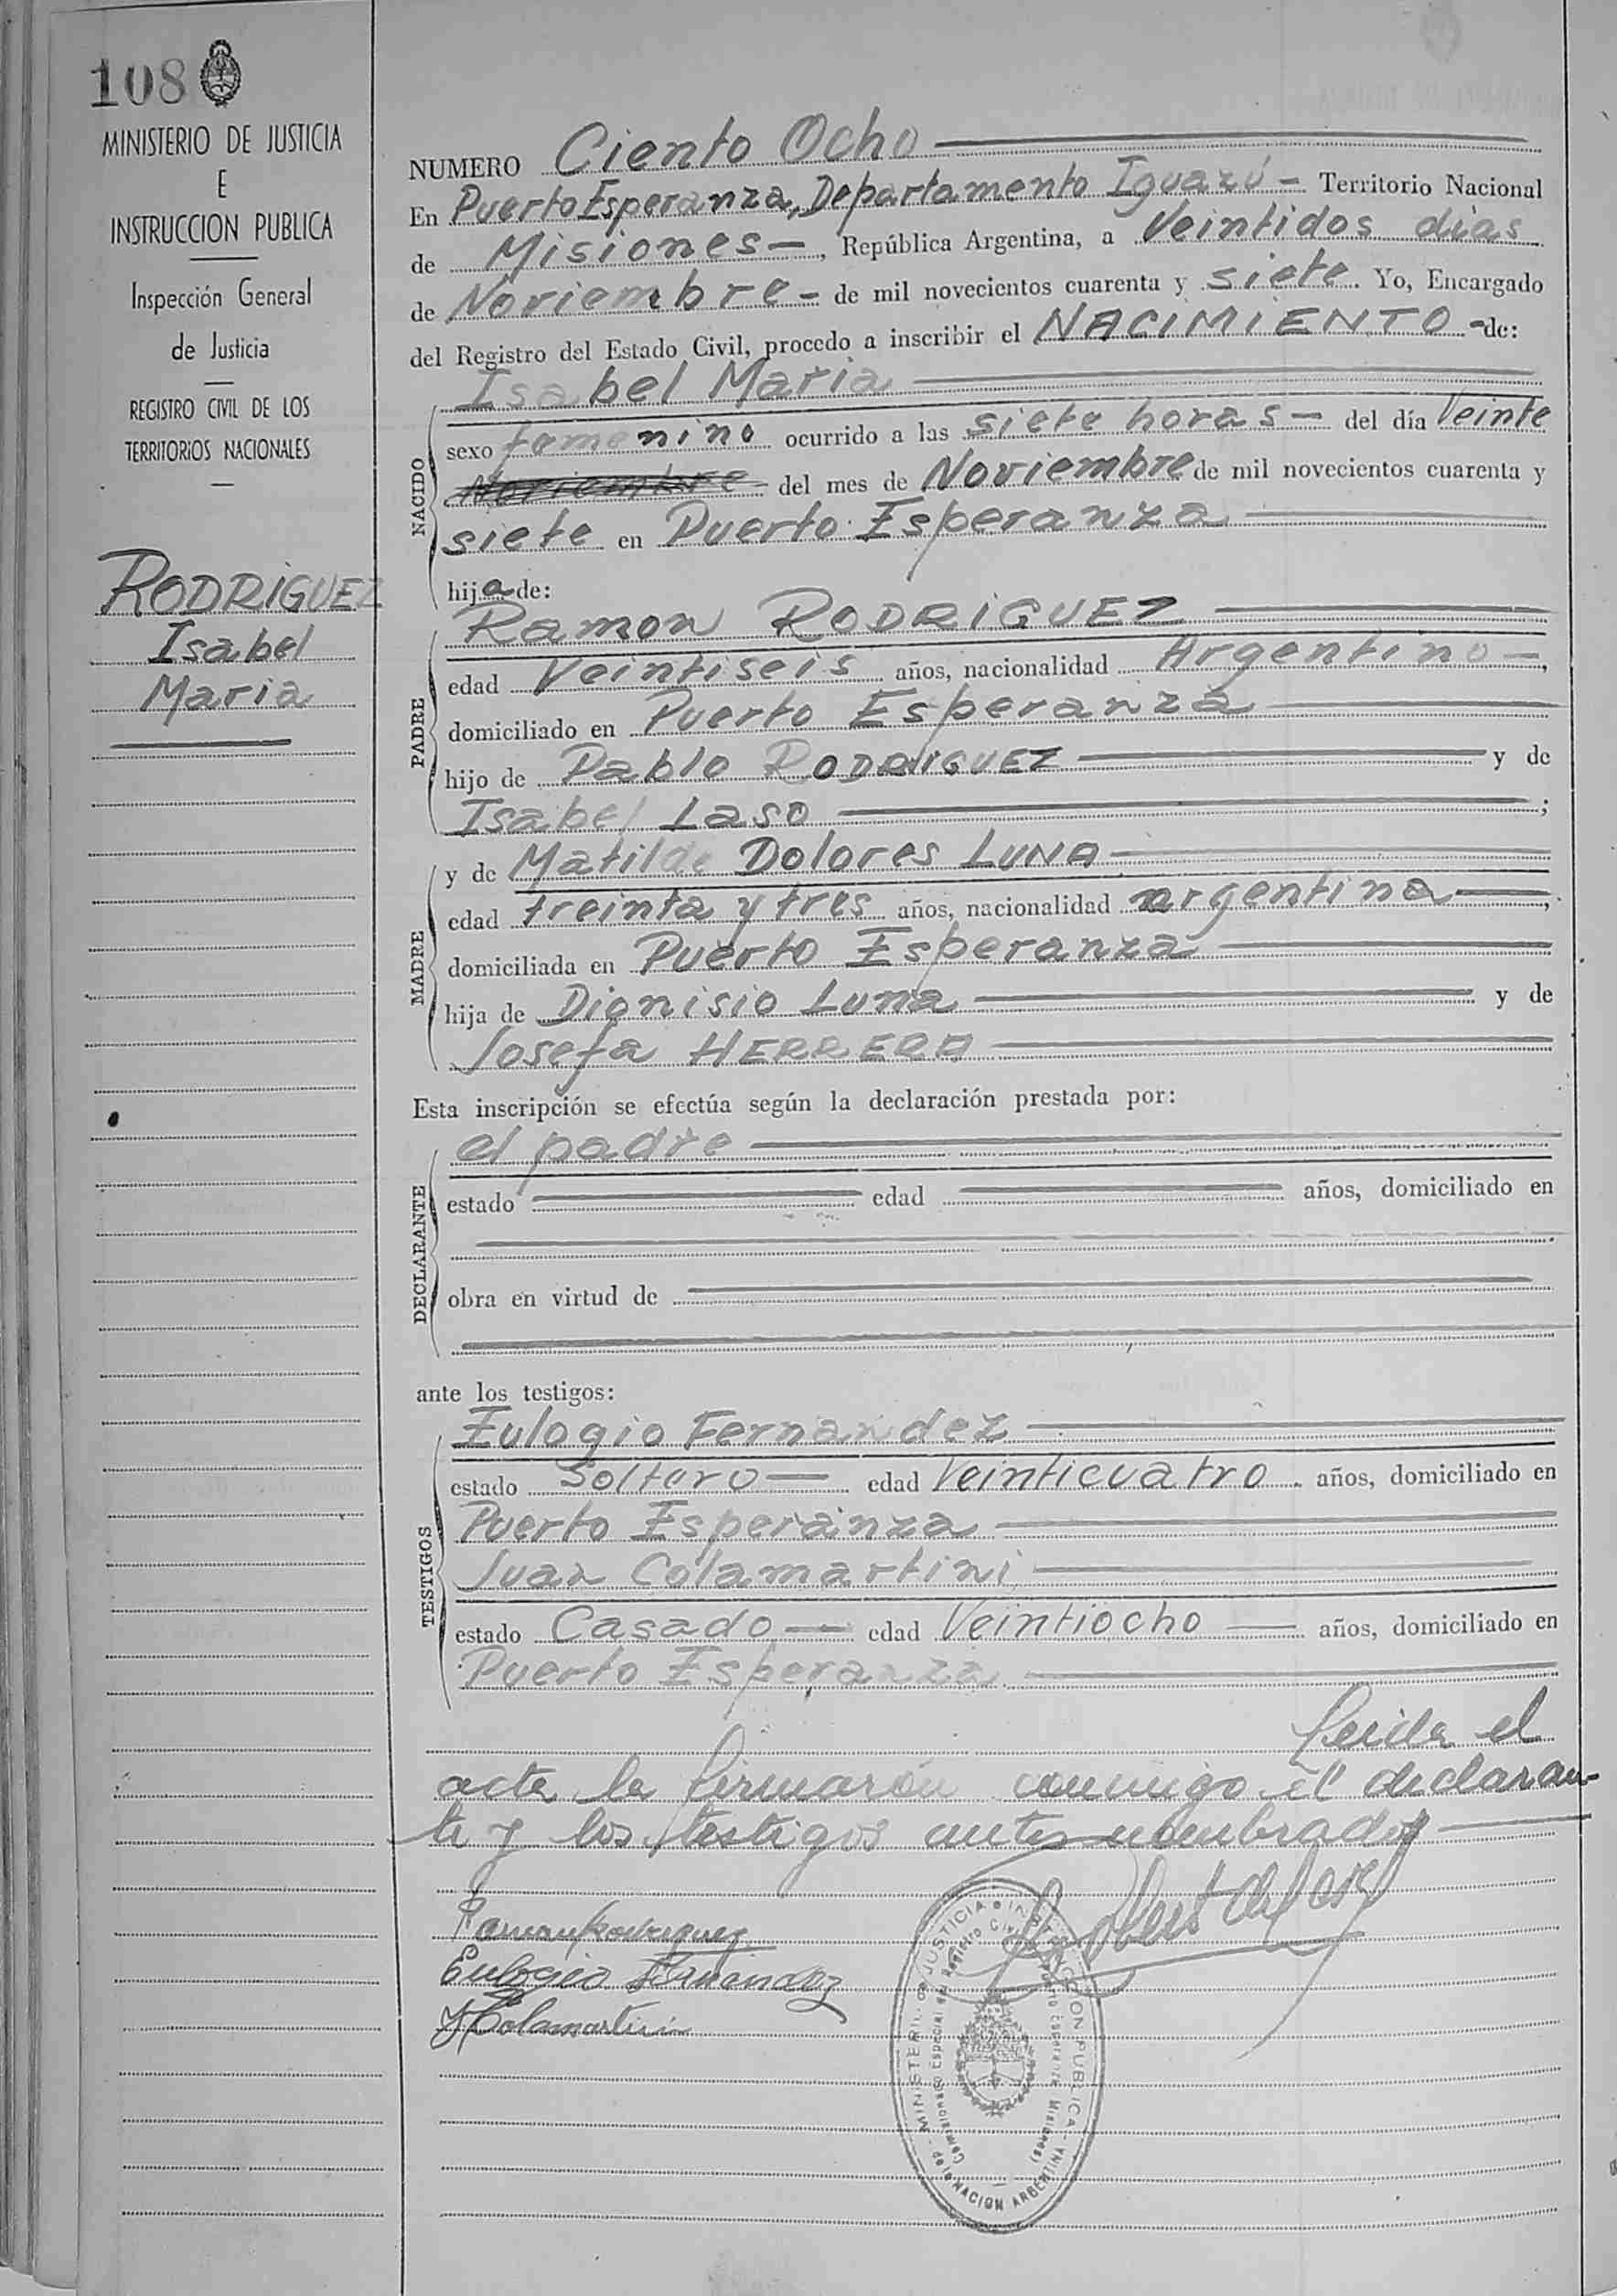 108
MINISTERIO DE JUSTICIA
E
INSTRUCCION PUBLICA
Inspección General
de Justicia
REGISTRO CIVIL DE LOS
TERRITORIOS NACIONALES
RODRIGUEZ
Isabel
Maria
NUMERO Ciento Ocho
En Puerto Esperanza, Departamento Iguazú - Territorio Nacional
de Misiones -, República Argentina, a Veintidos dias
de Noviembre - de mil novecientos cuarenta y siete. Yo, Encargado
del Registro del Estado Civil, procedo a inscribir el NACIMIENTO - de:
NACIDO
Isabel Maria
sexo femenino ocurrido a las siete horas - del día Veinte
Noviembre del mes de Noviembre de mil novecientos cuarenta y
siete en Puerto Esperanza
hija de:
PADRE
Ramon RODRIGUEZ
edad Veintiseis años, nacionalidad Argentino -,
domiciliado en Puerto Esperanza
hijo de Pablo RODRIGUEZ y de
Isabel Laso ;
MADRE
y de Matilde Dolores LUNA
edad treinta y tres años, nacionalidad argentina ,
domiciliada en Puerto Esperanza
hija de Dionisio Luna y de
Josefa HERRERA
Esta inscripción se efectúa según la declaración prestada por:
DECLARANTE
el padre
estado edad años, domiciliado en
obra en virtud de
ante los testigos:
TESTIGOS
Eulogio Fernandez
estado Soltero - edad Veinticuatro años, domiciliado en
Puerto Esperanza
Juan Colamartini
estado Casado - edad Veintiocho - años, domiciliado en
Puerto Esperanza
Leida el
acta la firmarón conmigo el declaran-
te y los testigos antes nombrados
Ramon Rodriguez
Eulogio Fernandez
J Colamartini
MINISTERIO DE JUSTICIA E INSTRUCCION PUBLICA
de la NACION ARGENTINA
Comisionado Especial del Registro Civil Puerto Esperanza (Misiones)